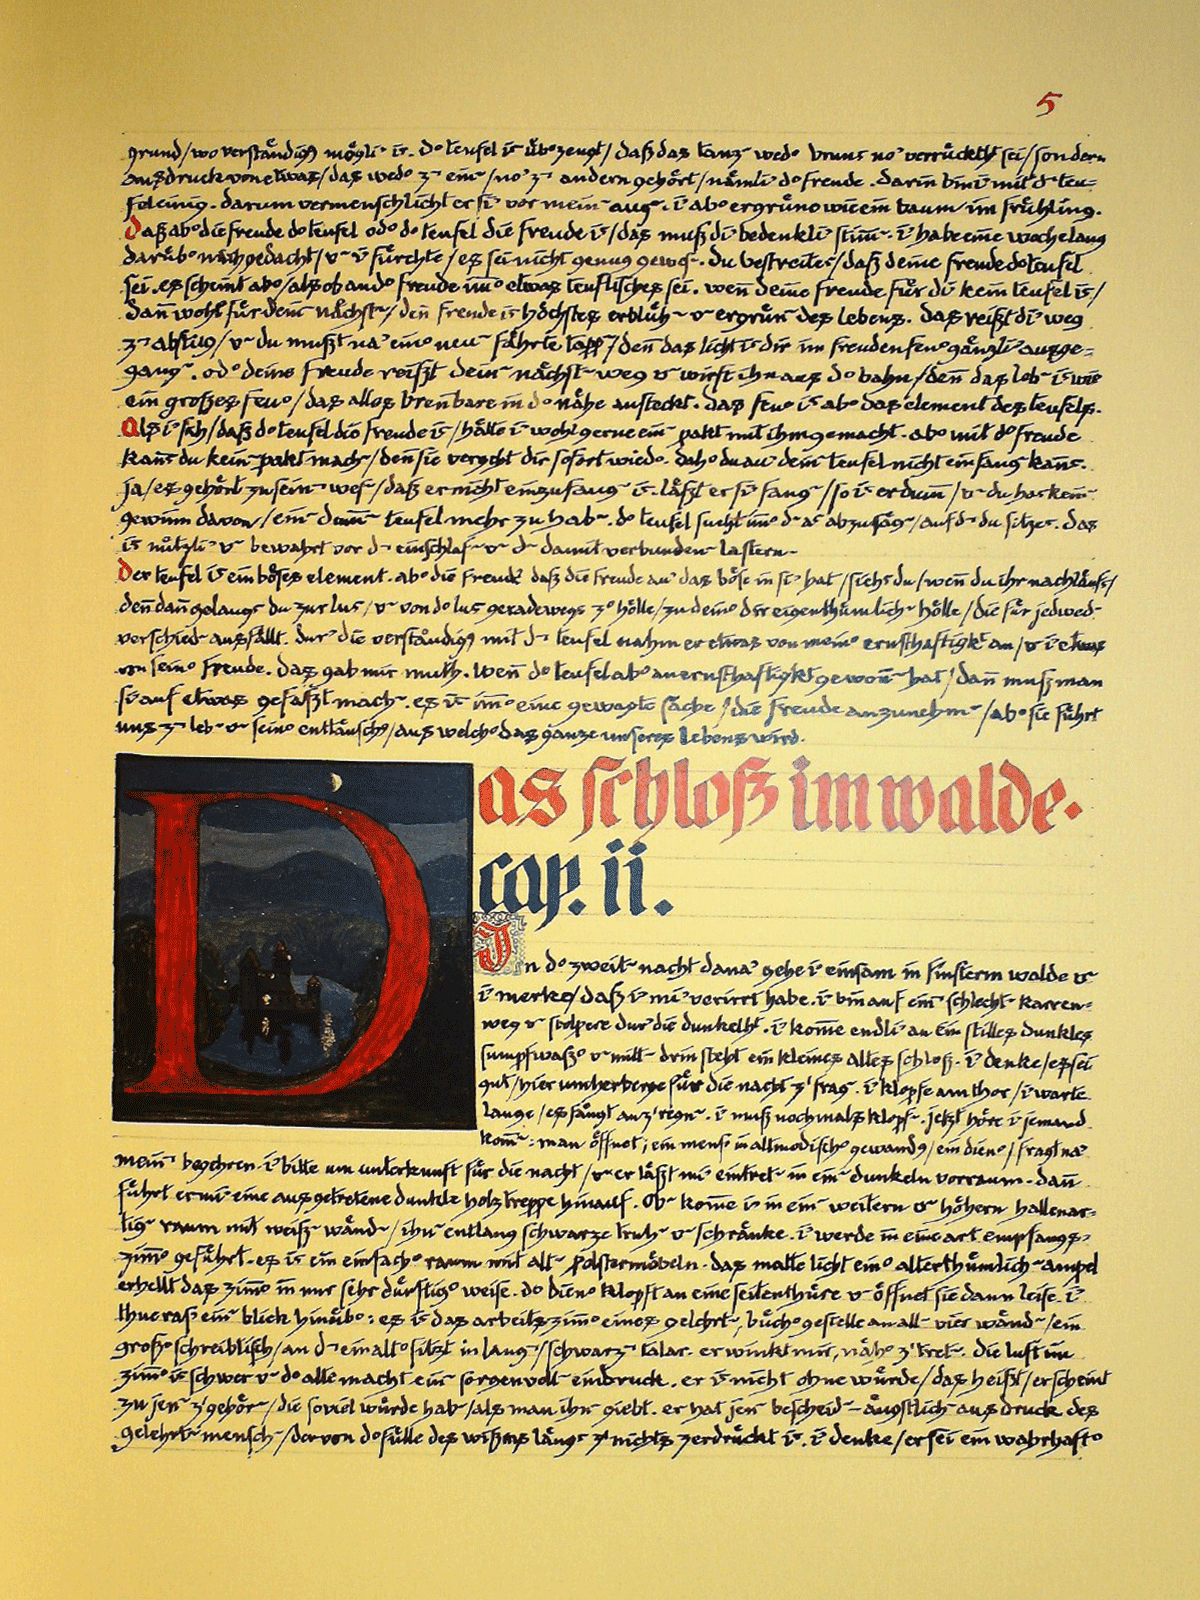 5
grund/wo verständigg mögli' is. do teufel is übozeugt/daß das tanz wedo brunst no' verrücktht sei/sondern
ausdruck von etwas/das wedo z ein/no' z andern gehört/nämli do freude. darin bin i mit d teu=
fel einig. darum vermenschlicht er si vor mein aug. i abo ergrüne wie ein baum im frühling.
Daß abo die freude do teufel odo do teufel die freude is/das muß di bedenkli stimm. i habe eine woche lang
darübo nachgedacht/u i fürchte/es sei nicht genug gewes. du bestreites/daß deine freude do teufel
sei. es scheint abo/als ob an do freude imo etwas teuflisches sei. wen deine freude für di kein teufel is/
dan wohl für dein nächst/den freude is höchstes erblüh u ergrün des lebens. das reißt di weg
z abstieg/u du mußt na' eino neu fährte tapp/den das licht is dir im freudenfeuo gänzli ausge=
gang. odo deine freude reißt dein nächst weg u wirft ihn aus do bahn/den das leb is wie
ein großes feuo/das alles brenbare in do nähe ansteckt. das feuo is abo das element des teufels.
Als i sah/daß do teufel die freude is/hätte i wohl gerne ein pakt mit ihm gemacht. abo mit do freude
kans du kein pakt mach/den sie vergeht dir sofort wiedo. daho du au dein teufel nicht einfang kans.
ja/es gehört zu sein wes/daß er nicht einzufang is. läßt er si fang/so is er dum/u du has kein
gewinn davon/ein dum teufel mehr zu hab. do teufel sucht imo d as abzusäg/auf d du sitzes. das
is nützli u bewahrt vor d einschlaf u d damit verbunden lastern.
Der teufel is ein böses element. abo die freude? daß die freude au' das böse in si' hat/siehs du/wen du ihr nachläufs/
den dan gelangs du zur lus/u von do lus geradewegs zo hölle/zu deino dir eigenthümlich hölle/die für jedwed
verschied ausfällt. dur' die verständigg mit d teufel nahm er etwas von meino ernsthaftigkt an/u i etwas
von seino freude. das gab mir muth. wen do teufel abo an ernsthaftigkt gewon hat/dan muß man
si auf etwas gefaßt mach. es is imo eine gewagte sache/die freude anzunehm/abo sie führt
uns z leb u seino enttäuschg/aus welcho das ganze unseres lebens wird.
Das schloß im walde.
cap. ii.
In do zweit nacht dana' gehe i einsam in finsterm walde u
i merke/daß i mi' verirrt habe. i bin auf ein schlecht karren=
weg u stolpere dur' die dunkelht. i kome endli an ein stilles dunkles
sumpfwasso u mitt drin steht ein kleines altes schloß. i denke/es sei
gut/hier um herberge für die nacht z' frag. i klopfe am thor/i warte
lange/es fängt an z' regn. i muß nochmals klopf. jetzt höre i jemand
kom: man öffnet; ein mens in altmodischo gewandg/ein dieno/fragt na'
mein begehren. i bitte um unterkunft für die nacht/u er läßt mi eintret in ein dunkeln vorraum. dan
führt er mi eine ausgetretene dunkle holztreppe hinauf. Ob kome i in ein weitern u höhern hallenar=
tig raum mit weiß wänd/ihn entlang schwarze truh u schränke. i werde in eine art empfangs=
zimo geführt. es is ein einfacho raum mit alt polstermöbeln. das matte licht eino alterthümlich ampel
erhellt das zimo in nur sehr dürftigo weise. do dieno klopft an eine seitenthüre u öffnet sie dann leise. i
thue raß ein blick hinübo: es is das arbeitszimo eines gelehrt, büchogestelle an all vier wänd/ein
große schreibtisch/an d ein alto sitzt in lang/schwarz talar. er winkt mir, näho z' tret. die luft im
zimo is schwer u do alte macht ein sorgenvoll eindruck. er is nicht ohne würde/das heißt/er scheint
zu jen z' gehör/die soviel würde hab/als man ihn giebt. er hat jen bescheid-ängstlich ausdruck des
gelehrt mensch/der von do fülle des wißens längs z' nichts zerdrückt is. i denke/er sei ein wahrhafto